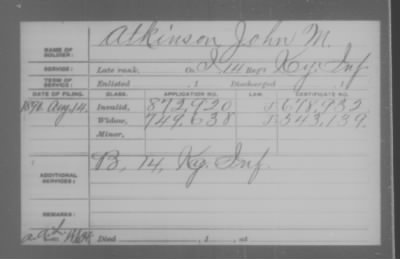 NAME OF SOLDIER: Atkinson John M.
SERVICE: Late rank, Co. I, 14 Reg't Ky. Inf.
TERM OF SERVICE: Enlisted , 1 Discharged , 1
DATE OF FILING. CLASS. APPLICATION NO. LAW. CERTIFICATE NO.
1890 Aug. 14. Invalid, 872,920 678,932
Widow, 749,638 543,139.
Minor,
ADDITIONAL SERVICES: B, 14, Ky. Inf.
REMARKS:
Died , 1 , at